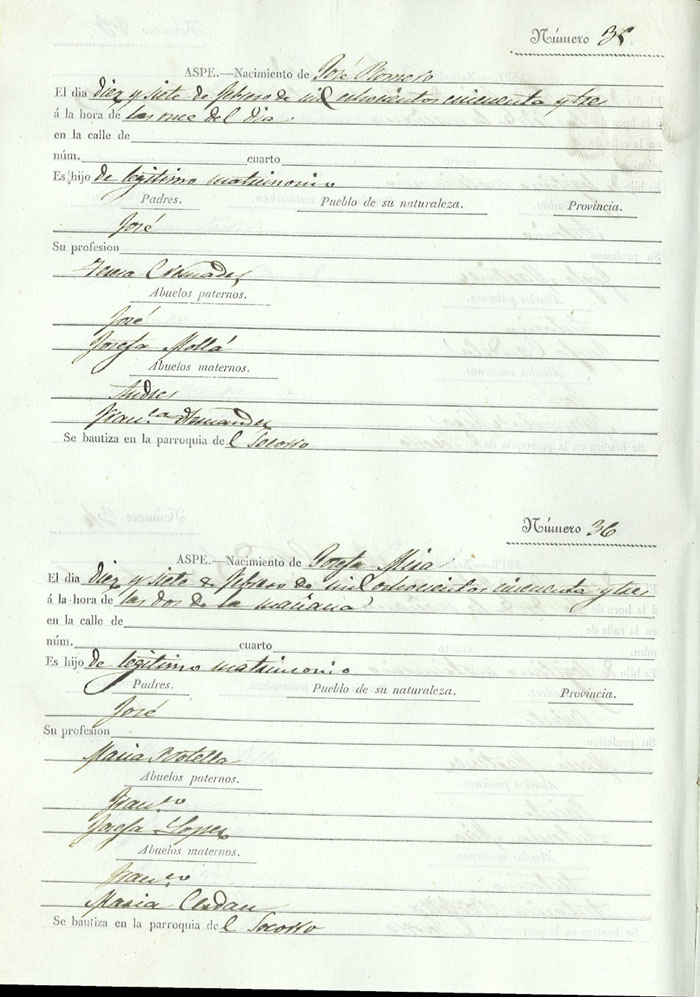 Número 35
ASPE.—Nacimiento de José Romero
El dia diez y siete de febrero de mil ochocientos cincuenta y tres
á la hora de las once del dia
en la calle de
núm. cuarto
Es hijo de legitimo matrimonio
Padres. Pueblo de su naturaleza. Provincia.
José
Su profesion
Teresa
Abuelos paternos.
José
Josefa Mollá
Abuelos maternos.
Andres
Fran.ca Hernandez
Se bautiza en la parroquia de l Socorro
Número 36
ASPE.—Nacimiento de Josefa Mira
El dia diez y siete de febrero de mil ochocientos cincuenta y tres
á la hora de las dos de la mañana
en la calle de
núm. cuarto
Es hijo de legitimo matrimonio
Padres. Pueblo de su naturaleza. Provincia.
José
Su profesion
Maria Botella
Abuelos paternos.
Fran.co
Josefa Lopez
Abuelos maternos.
Fran.co
Maria Cerdan
Se bautiza en la parroquia de l Socorro